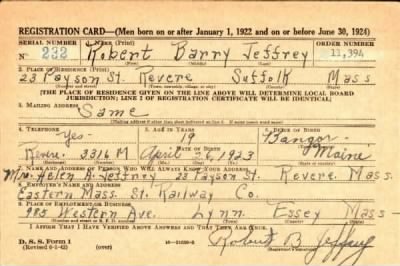 REGISTRATION CARD—(Men born on or after January 1, 1922 and on or before June 30, 1924)
SERIAL NUMBER 1. NAME (Print) ORDER NUMBER
232 Robert Barry Jeffrey 11,394
(First) (Middle) (Last)
2. PLACE OF RESIDENCE (Print)
23 Payson St. Revere Suffolk Mass
(Number and street) (Town, township, village, or city) (County) (State)
[THE PLACE OF RESIDENCE GIVEN ON THE LINE ABOVE WILL DETERMINE LOCAL BOARD
JURISDICTION; LINE 2 OF REGISTRATION CERTIFICATE WILL BE IDENTICAL]
3. MAILING ADDRESS
Same
[Mailing address if other than place indicated on line 2. If same insert word same]
4. TELEPHONE 5. AGE IN YEARS 6. PLACE OF BIRTH
Yes- 19 Bangor
DATE OF BIRTH
Revere 3316 M April 26, 1923 Maine
(Exchange) (Number) (Mo.) (Day) (Yr.) (State or country)
7. NAME AND ADDRESS OF PERSON WHO WILL ALWAYS KNOW YOUR ADDRESS
Mrs. Helen A. Jeffrey 23 Payson St. Revere Mass.
8. EMPLOYER'S NAME AND ADDRESS
Eastern Mass. St. Railway Co.
9. PLACE OF EMPLOYMENT OR BUSINESS
985 Western Ave. Lynn. Essex Mass
(Number and street) (Town) (County) (State)
I AFFIRM THAT I HAVE VERIFIED ABOVE ANSWERS AND THAT THEY ARE TRUE.
D. S. S. Form 1
(Revised 6-9-42) (over)
Robert B. Jeffrey